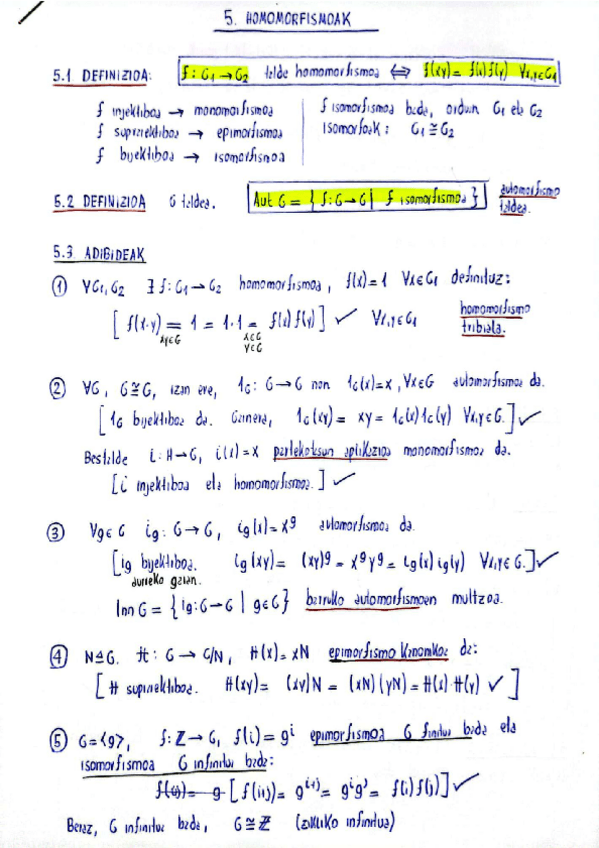 5. HOMOMORFISMOAK
5.1 DEFINIZIOA: f: G₁ → G₂ talde homomorfismoa ⟺ f(xy) = f(x)f(y) ∀x,y∈G₁
f injektiboa → monomorfismoa
f suprajektiboa → epimorfismoa
f bijektiboa → isomorfismoa
f isomorfismoa bada, orduan G₁ eta G₂
isomorfoak: G₁ ≅ G₂
5.2 DEFINIZIOA G taldea. Aut G = { f: G → G | f isomorfismoa } automorfismo
taldea.
5.3 ADIBIDEAK
① ∀G₁, G₂ ∃ f: G₁ → G₂ homomorfismoa, f(x) = 1 ∀x∈G₁ definituz:
[ f(x·y) = 1 = 1·1 = f(x) f(y) ] ✓ ∀x,y∈G₁ homomorfismo
xy∈G x∈G tribiala.
y∈G
② ∀G, G ≅ G, izan ere, 1G: G → G non 1G(x) = x, ∀x∈G automorfismoa da.
[ 1G bijektiboa da. Gainera, 1G(xy) = xy = 1G(x) 1G(y) ∀x,y∈G. ] ✓
Bestalde i: H → G, i(x) = x partekotasun aplikazioa monomorfismoa da.
[ i injektiboa eta homomorfismoa. ] ✓
③ ∀g∈G ig: G → G, ig(x) = x^g automorfismoa da.
[ ig bijektiboa. ig(xy) = (xy)^g = x^g y^g = ig(x) ig(y) ∀x,y∈G. ] ✓
aurreko gaian.
Inn G = { ig: G → G | g∈G } barruko automorfismoen multzoa.
④ N ⊴ G. π: G → G/N, π(x) = xN epimorfismo kanonikoa da:
[ π suprajektiboa. π(xy) = (xy)N = (xN)(yN) = π(x)·π(y) ✓ ]
⑤ G = ⟨g⟩, f: ℤ → G, f(i) = g^i epimorfismoa G finitua bada eta
isomorfismoa G infinitua bada:
f(ij) = g [ f(i+j) = g^{i+j} = g^i g^j = f(i) f(j) ] ✓
Beraz, G infinitua bada, G ≅ ℤ (zikliko infinitua)